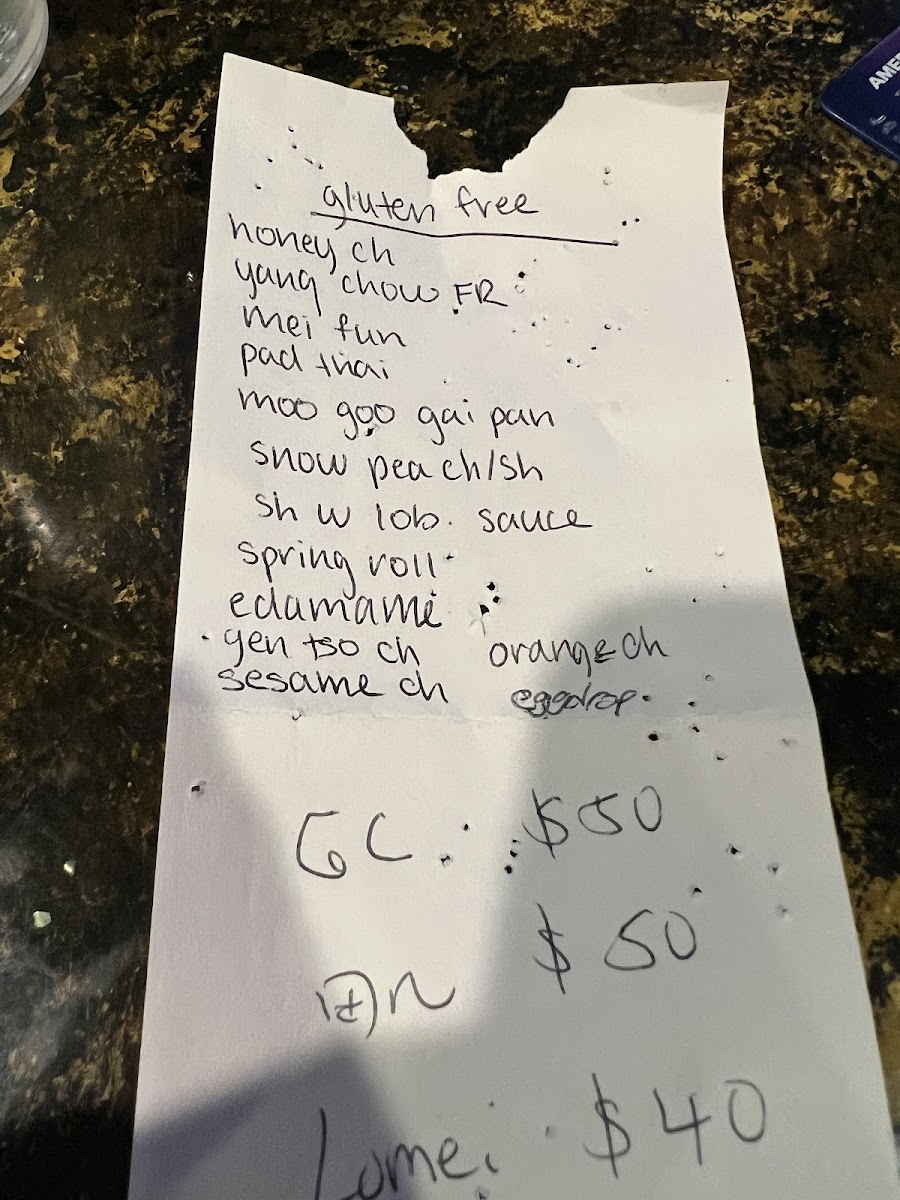 AME
gluten free
honey ch
yang chow FR
mei fun
pad thai
moo goo gai pan
snow pea ch/sh
sh w lob. sauce
spring roll
edamame
gen tso ch
orange ch
sesame ch
eggdrop
GC: $50
$50
Lomei $40